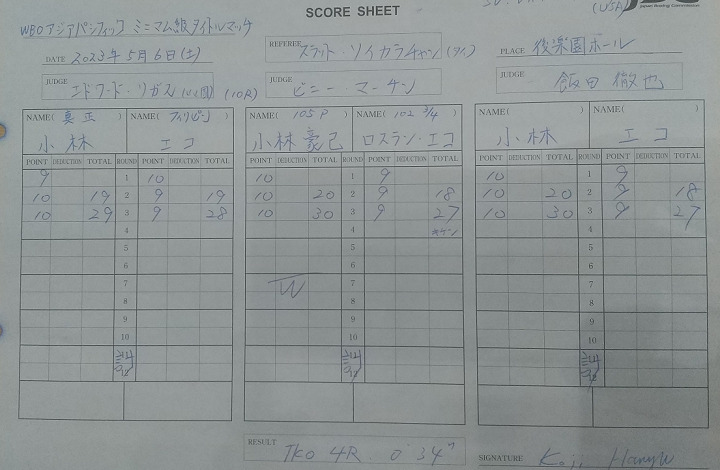 SCORE SHEET
(USA)
WBOアジアパシフィック ミニマム級タイトルマッチ
DATE 2023年5月6日(土)
REFEREE スラット・ソイカラチャン(タイ)
PLACE 後楽園ホール
JUDGE エドワード・リガス (10R)
JUDGE ビニー・マーチン
JUDGE 飯田徹也
NAME( 真正 ) 小林 NAME( フィリピン ) エコ
POINT DEDUCTION TOTAL ROUND POINT DEDUCTION TOTAL
9 1 10
10 19 2 9 19
10 29 3 9 28
4
5
6
7
8
9
10
NAME( 105P ) 小林豪己 NAME( 102 3/4 ) ロスラン・エコ
POINT DEDUCTION TOTAL ROUND POINT DEDUCTION TOTAL
10 1 9
10 20 2 9 18
10 30 3 9 27
4
5
6
W 7
8
9
10
NAME( ) 小林 NAME( ) エコ
POINT DEDUCTION TOTAL ROUND POINT DEDUCTION TOTAL
10 1 9
10 20 2 9 18
10 30 3 9 27
4
5
6
7
8
9
10
RESULT TKO 4R 0'34"
SIGNATURE